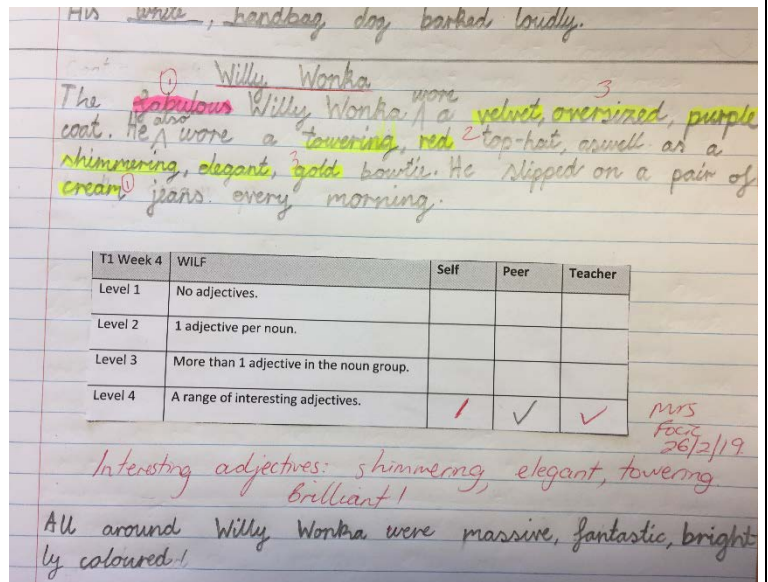 His white, handbag dog barked loudly.
Willy Wonka
1
wore
3
The fabulous Willy Wonka ^ a velvet, oversized, purple
also
coat. He ^ wore a towering, red 2 top-hat, aswell as a
shimmering, elegant, 3 gold bowtie. He slipped on a pair of
cream 1 jeans every morning.
T1 Week 4 WILF Self Peer Teacher
Level 1 No adjectives.
Level 2 1 adjective per noun.
Level 3 More than 1 adjective in the noun group.
Level 4 A range of interesting adjectives. / ✓ ✓
Mrs
26/2/19
Interesting adjectives: shimmerng, elegant, towering.
Brilliant!
All around Willy Wonka were massive, fantastic, bright
ly coloured!